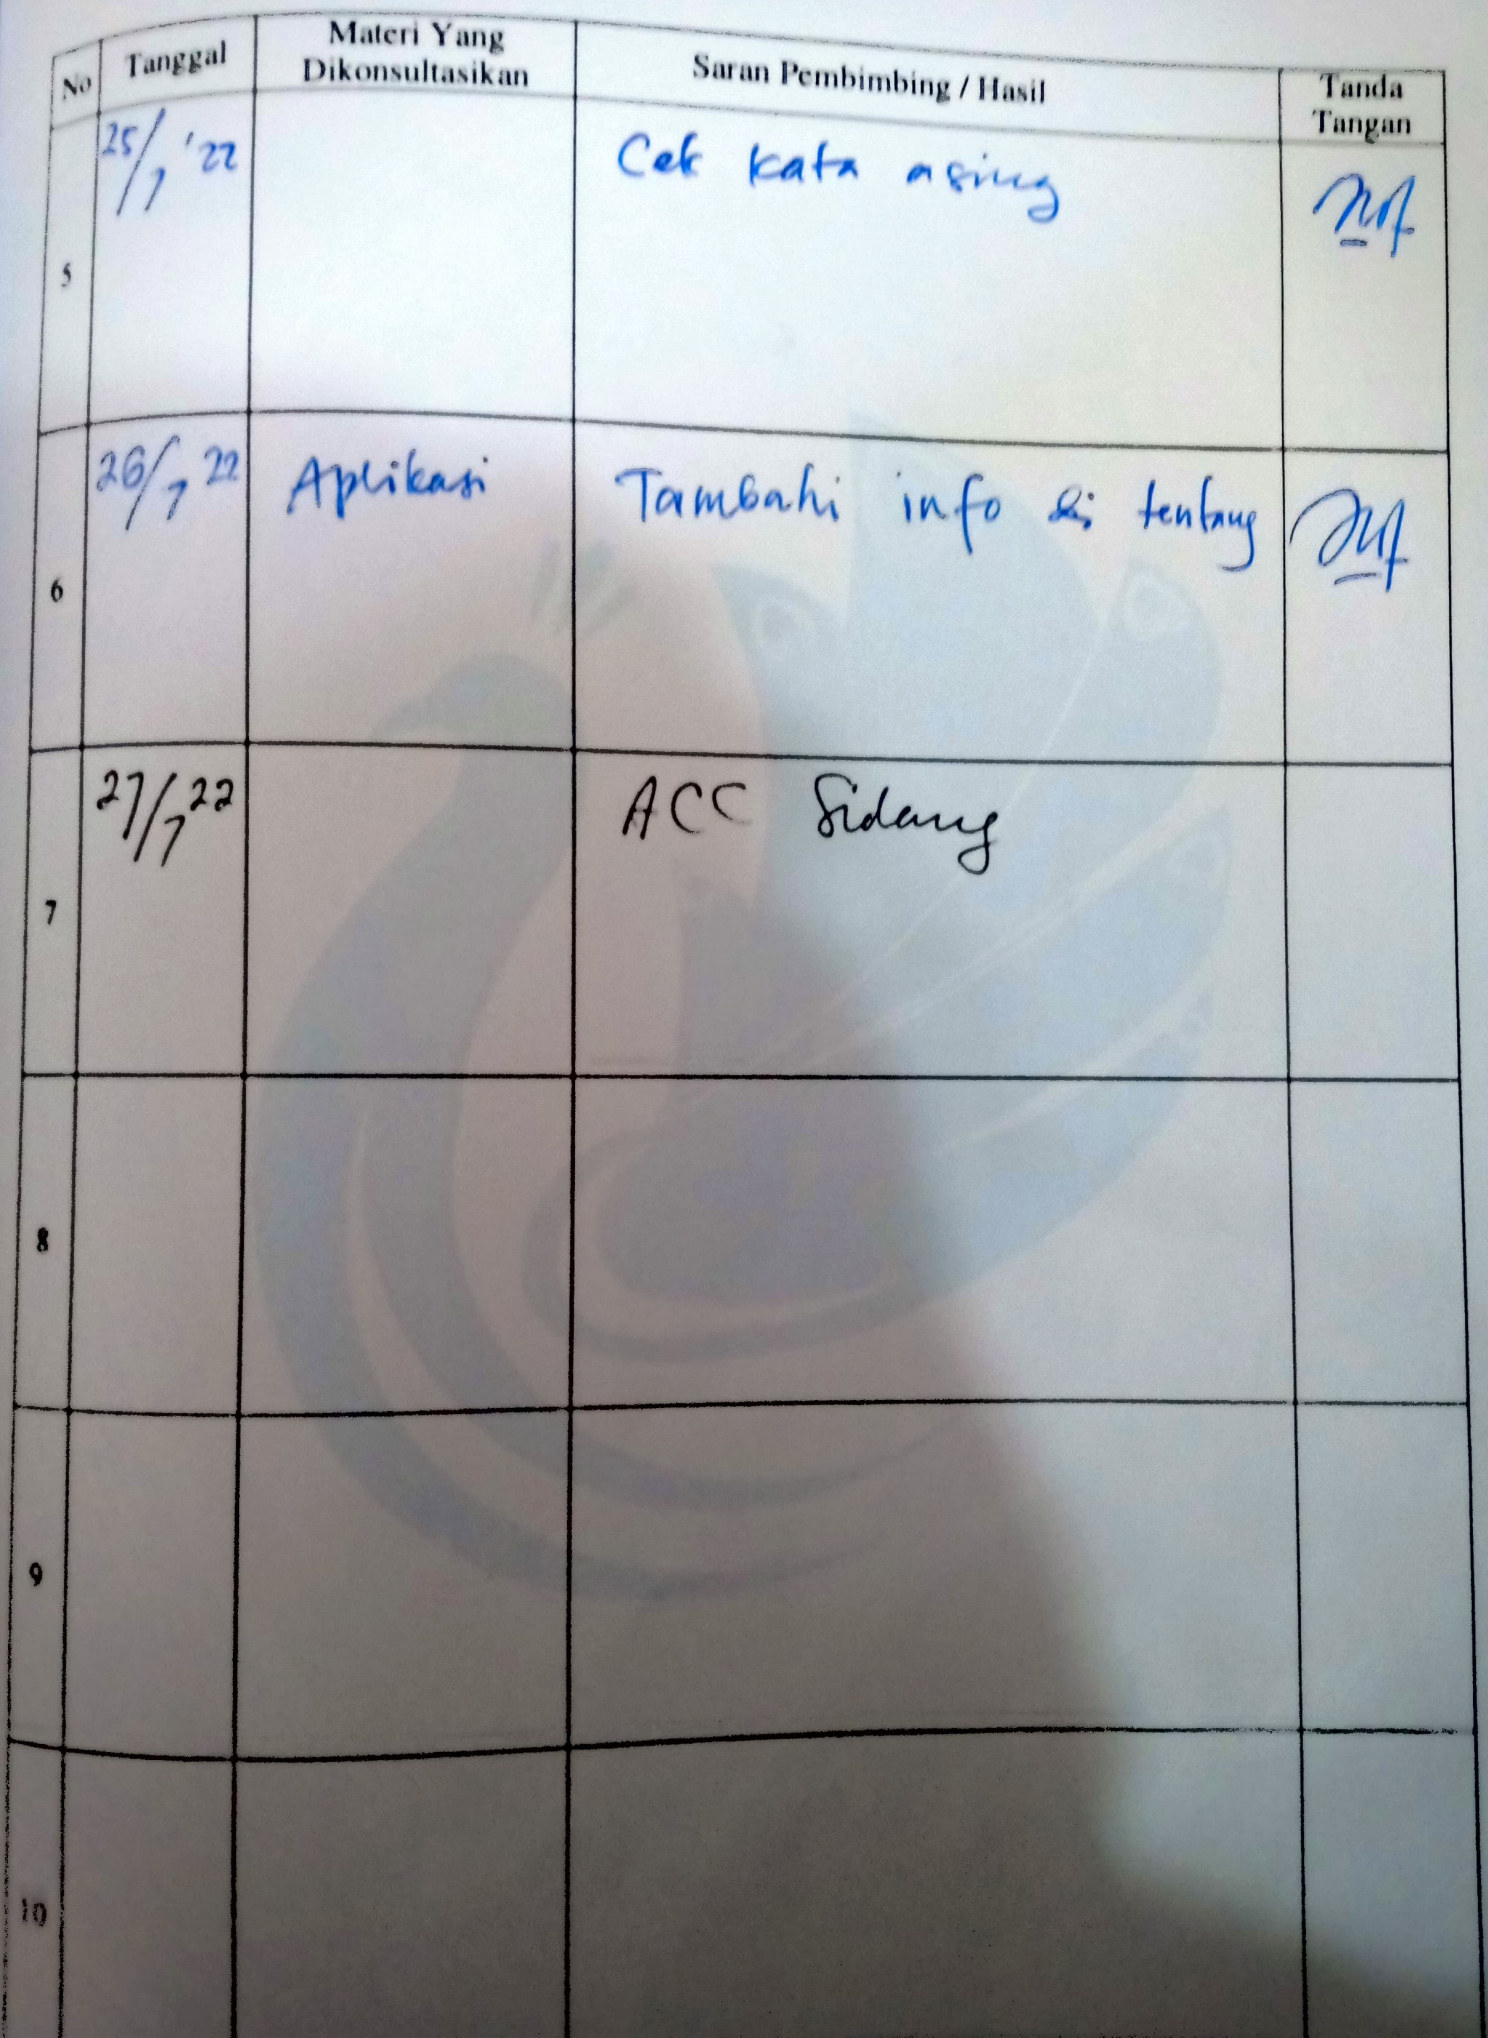 No Tanggal Materi Yang Dikonsultasikan Saran Pembimbing / Hasil Tanda Tangan
5 25/7 '22 Cek kata asing
6 26/7 22 Aplikasi Tambahi info di tentang
7 27/7 22 ACC Sidang
8
9
10